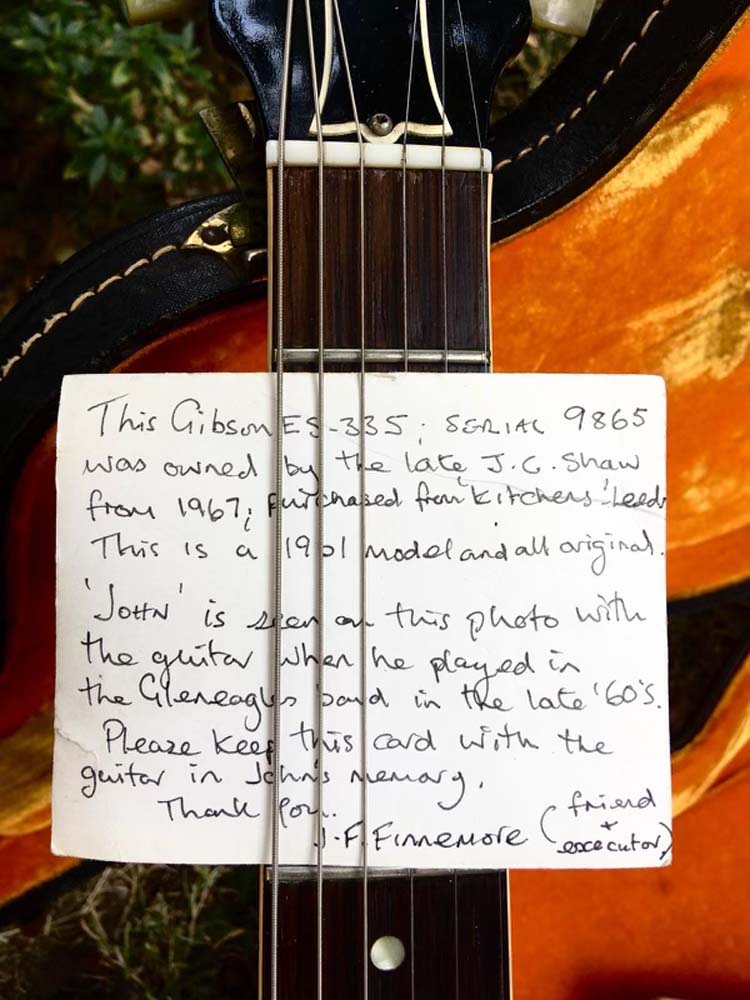 This Gibson ES-335; SERIAL 9865
was owned by the late J.C. Shaw
from 1967; purchased from Kitchens 'Leeds
This is a 1961 model and all original.
'JOHN' is seen on this photo with
the guitar when he played in
the Gleneagles band in the late '60's.
Please keep this card with the
guitar in John's memory.
Thank you.
J.F. Finnemore (friend
+
executor)